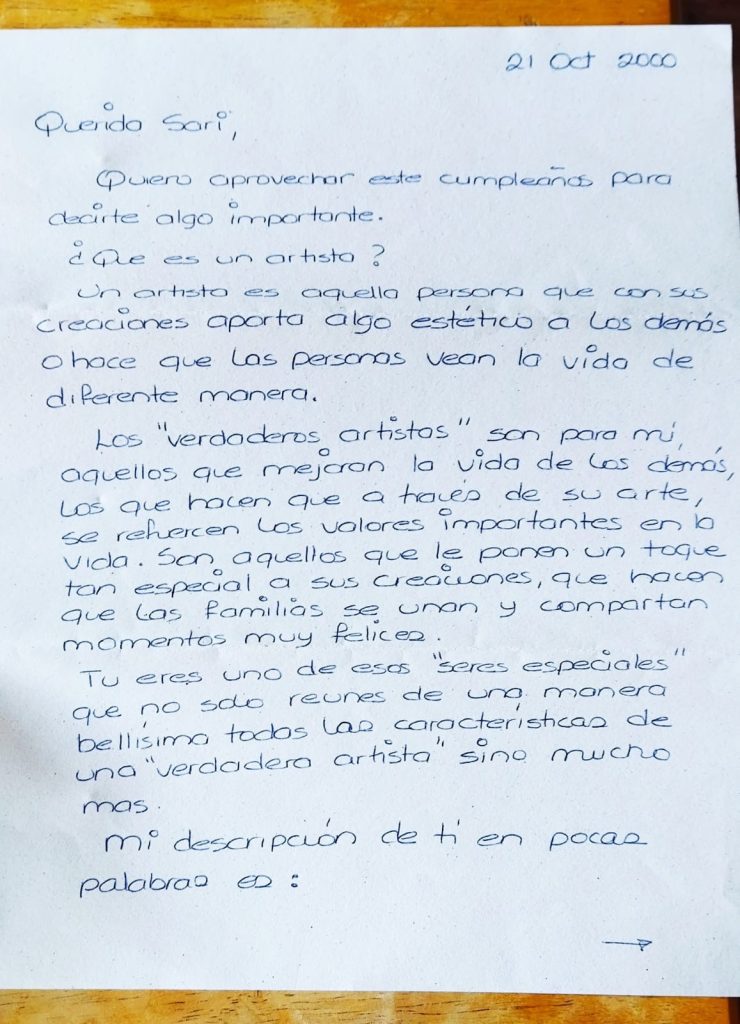 21 Oct 2000
Querida Sari,
Quiero aprovechar este cumpleaños para
decirte algo importante.
¿Que es un artista?
Un artista es aquella persona que con sus
creaciones aporta algo estético a los demás
o hace que las personas vean la vida de
diferente manera.
Los "verdaderos artistas" son para mi,
aquellos que mejoran la vida de los demás,
los que hacen que a través de su arte,
se refuercen los valores importantes en la
vida. Son aquellos que le ponen un toque
tan especial a sus creaciones, que hacen
que las familias se unan y compartan
momentos muy felices.
Tu eres uno de esos "seres especiales"
que no solo reunes de una manera
bellísima todas las características de
una "verdadera artista" sino mucho
mas.
Mi descripción de ti en pocas
palabras es:
→